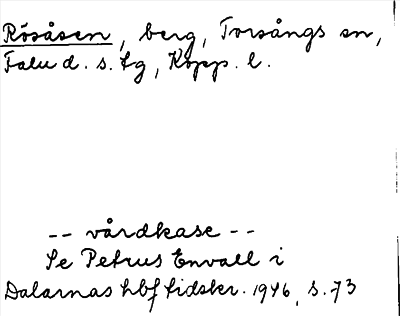 Rösåsen, berg, Torsångs sn,
Falu d. s. tg, Kopp. l.
-- vårdkase --
Se Petrus Envall i
Dalarnas hbf tidskr. 1946, s. 73